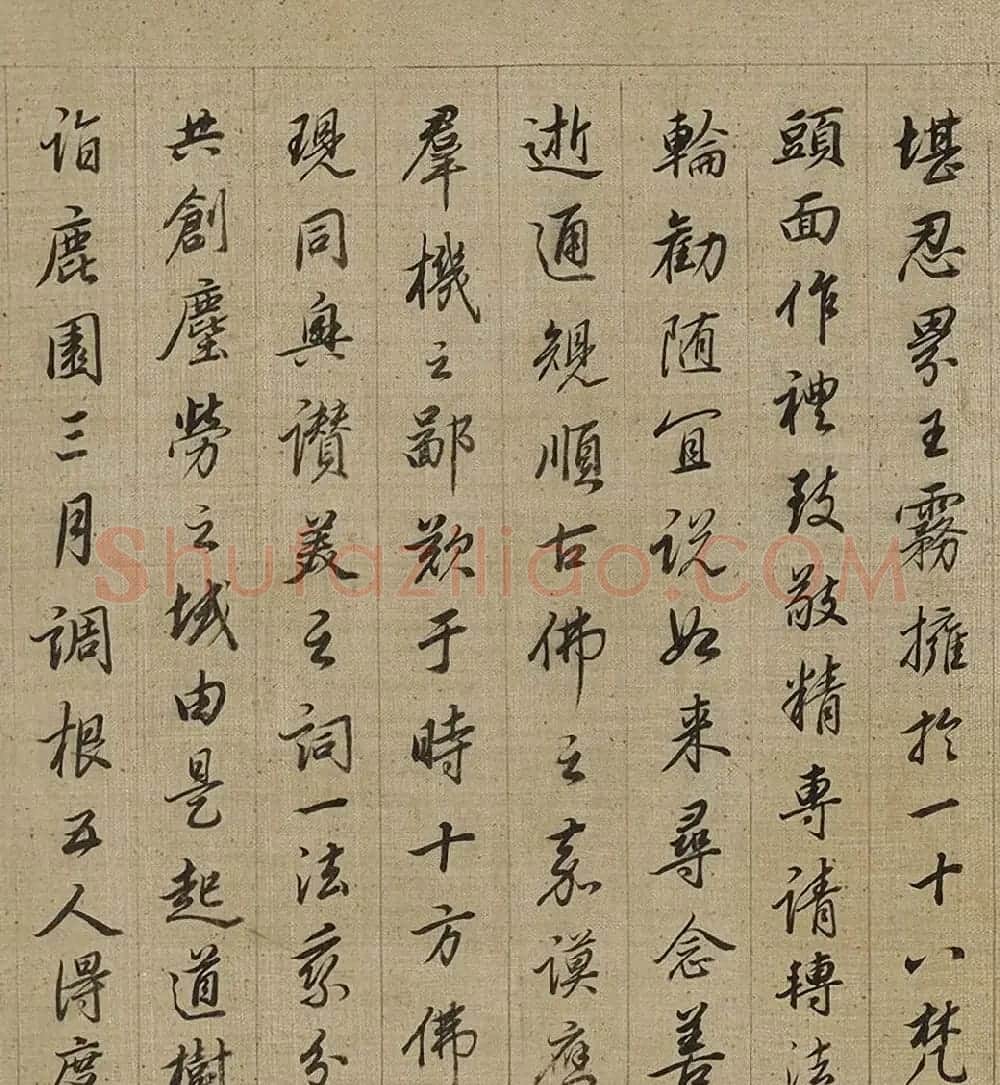 堪忍界王霧擁於一十八梵
頭面作禮致敬精專請轉法
輪勸随宜說如来尋念善
逝通規順古佛之嘉謨應
羣機之鄙欵于時十方佛
現同興讃美之詞一法乘分
共創塵勞之域由是起道樹
詣鹿園三月調根五人得度
Shufaziliao.COM